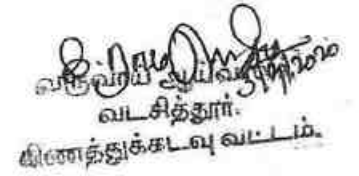 வருவாய் ஆய்வாளர்
வடசித்தூர்.
கிணத்துக்கடவு வட்டம்.